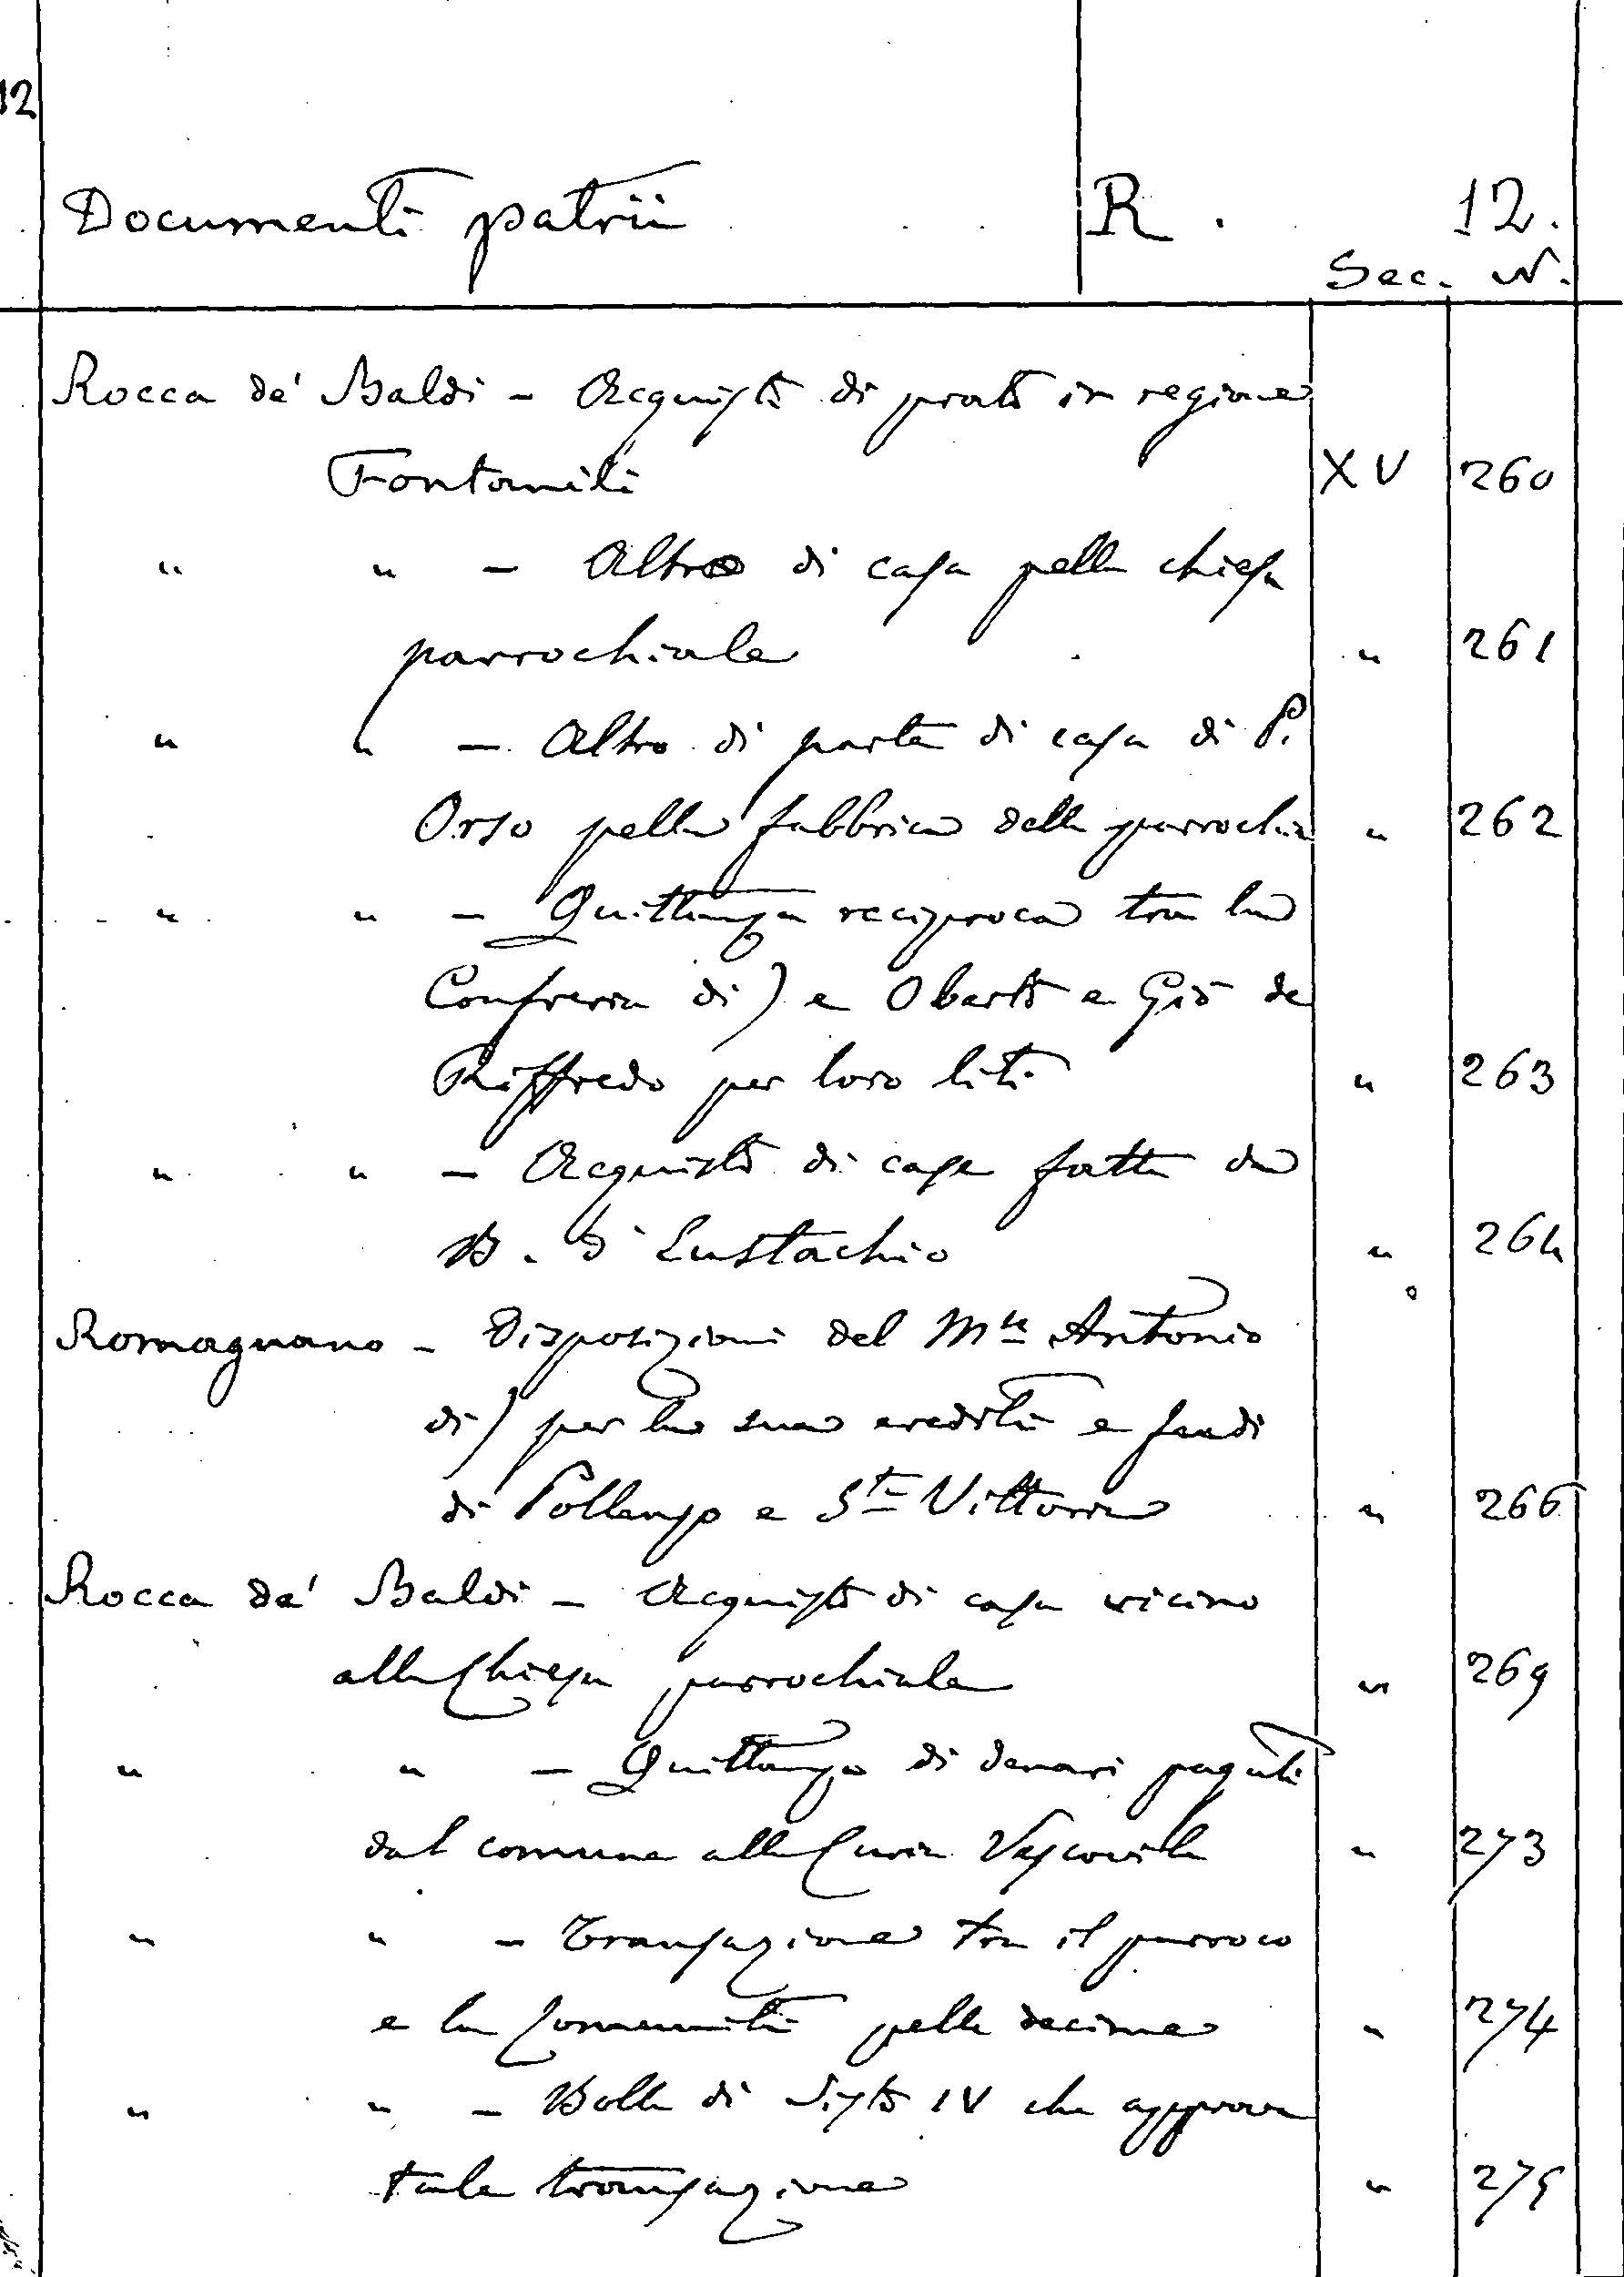 12
Documenti patrii R. 12.
Sec. N.
Rocca de' Baldi - Acquisto di prato in regione
Fontanili XV 260
" " - Altro di casa pella chiesa
parrochiale " 261
" " - Altro di parte di casa di P.
Orso pella fabbrica della parrochia " 262
" " - Quittanza reciproca tra la
Confreria di) e Oberto e Giò de
Riffredo per loro liti " 263
" " - Acquisto di case fatte da
B. d' Eustachio " 264
Romagnano - Disposizioni del Mse Antonio
di) per la sua eredità e feudi
di Pollenzo e Sta Vittoria " 266
Rocca de' Baldi - Acquisto di casa vicino
alla Chiesa parrochiale " 269
" " - Quittanza di denari pagati
dal comune alla Curia Vescovile " 273
" " - Transazione tra il parroco
e la Comunità pelle decime " 274
" " - Bolla di Sisto IV che approva
tale transazione " 275